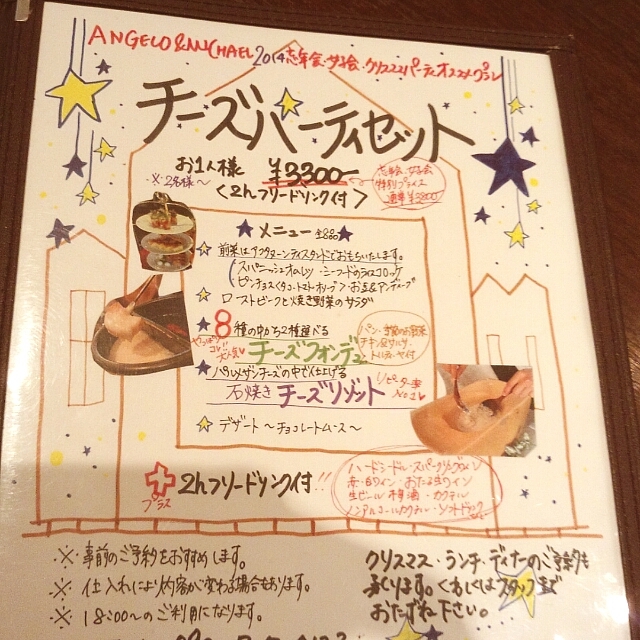 ANGELO&MICHAEL 2014 忘年会・女子会・クリスマスパーティオススメプラン
チーズパーティセット
お1人様 ¥3,300-
※2名様~
<2hフリードリンク付>
忘年会・女子会
特別プライス
通常¥3800
★メニュー 全8品★
前菜はアフタヌーンティスタンドでおもちいたします。
スパニッシュオムレツ・シーフードのライスコロッケ
ピンチョス
ローストビーフと焼き野菜のサラダ
8種の中から2種選べる
やっぱりコレ!!
大人気♥
チーズフォンデュ
パン・季節のお野菜
チキン&
トルティヤ付
パルメザンチーズの中で仕上げる
石焼きチーズリゾット
リピーター率
No.1♥
デザート ~チョコレートムース~
プラス
2hフリードリンク付!!
ハードシードル・スパークリングワイン
赤・白ワイン・おたる生ワイン
生ビール・梅酒・カクテル
ノンアルコールカクテル・ソフトドリンク
※ 事前のご予約をおすすめします。
※ 仕入れにより内容が変わる場合もあります。
※ 18:00~のご利用になります。
クリスマス・ランチ・ディナーのご予約も
承ります。くわしくはスタッフまで
おたずね下さい。